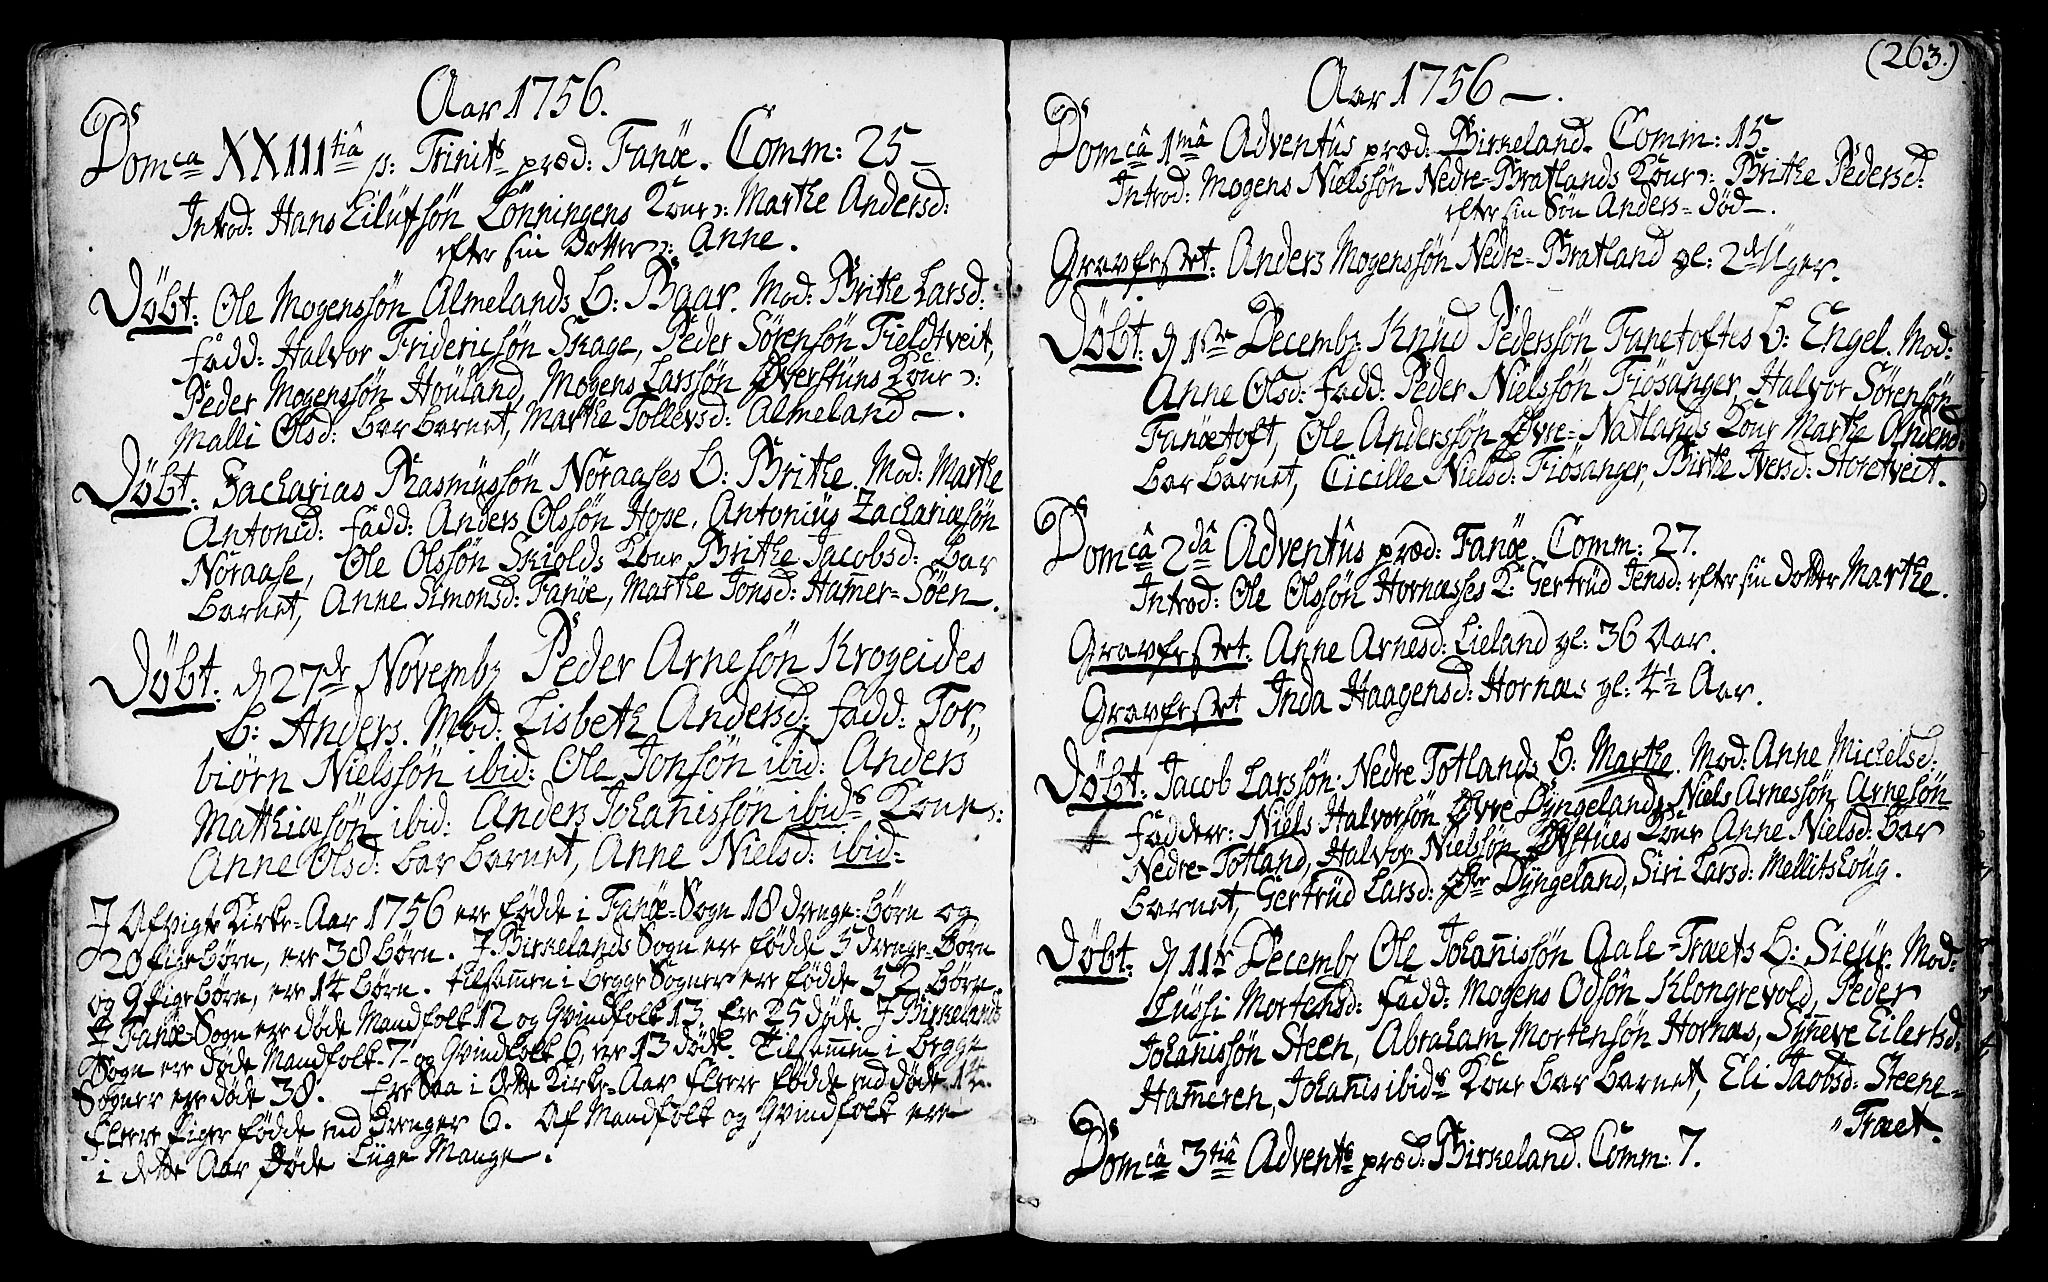 Aar 1756.
Domca XXIIItiâ p: Trinits præd: Fanöe. Comm: 25 –
Introd: Hans Eilüfsön Lönningens Kone: Marthe Andersd:
efter sin Dotter: Anne.
Döbt: Ole Mogenssön Almelands b: Baar. Mod: Brithe Larsd:
fadd: Halvor Fridericsön Skage, Peder Sörensön Fieldtveit,
Peder Mogenssön Houland, Mogens Larssön Øverstüns Kone:
Malli Olsd: bar barnet, Marthe Tollevsd: Almeland –.
Döbt: Zacharias Rasmussön Noraases b: Brithe. Mod: Marthe
Antonid: fadd: Anders Olssön Hope, Antonius Zachariæsön
Noraase, Ole Olssön Skiolds Kone Brithe Jacobsd: bar
barnet, Anne Simonsd: Fanöe, Marthe Jonsd: Ham̄er-Söen.
Döbt: d 27de Novemb: Peder Arnesön Krogeides
b: Anders. Mod: Lisbeth Andersd: fadd: Tor„
biörn Nielssön ibid: Ole Jonsön ibid: Anders
Matthiæsön ibid: Anders Johan̄issön ibids Kone:
Anne Olsd: bar barnet, Anne Nielsd: ibid=
I Afvigte Kirke-Aar 1756 ere fødde i Fanöe-Sogn 18 drenge-börn og
20 pigebörn, er 38 börn. I Birkelands Sogn ere födde 5 drenge-börn
og 9 pigebörn, er 14 börn. tilsam̄en i begge Sogner ere födde 52 börn.
I Fanöe-Sogn ere döde Mandfolk 12 og Qvindfolk 13 er 25 döde. I Birkelands
Sogn ere döde Mandfolk-7- og Qvindfolk 6, er 13 döde. Tilsam̄en i begge
Sogner ere döde 38. Ere Saa i dette Kirke-Aar fleere födde end döde 14.
fleere piger födde end drenger 6. Af Mandfolk og Qvindfolk ere
i dette Aar döde Lüge Mange.
(263.)
Aar 1756 –.
Domcâ 1mâ Adventûs præd: Birkeland. Comm: 15.
Introd: Mogens Nielssön Nedre-Bratlands Kone: Brithe Pedersd:
efter sin Sön Anders- död –.
Gravfestet: Anders Mogenssön Nedre-Bratland gl: 2de Uger.
Döbt: d 1ste Decemb: Knüd Pederssön Fanetoftes b: Engel. Mod:
Anne Olsd: fadd: Peder Nielssön Fiösanger, Halvor Sörensön
Fanöetoft, Ole Anderssön Øvre-Natlands Kone Marthe Andersd:
bar barnet, Cicille Nielsd: Fiösanger, Birthe Iversd: Storetveit.
Domcâ 2dâ Adventûs præd: Fanöe. Comm: 27.
Introd: Ole Olssön Hornæsses K: Gertrüd Jensd: efter sin dotter Marthe.
Gravfestet: Anne Arnesd: Lieland gl: 36 Aar.
Gravfestet Inda Haagensd: Hornæs gl: 4½ Aar.
Döbt: Jacob Larssön Nedre Totlands b: Marthe. Mod: Anne Michelsd:
fadder: Niels Halvorsön Øvre Dyngelands, Niels Arnessön Arnesön
Nedre-Totland, Halvor Nielsön Østües Kone Anne Nielsd: bar
barnet, Gertrüd Larsd: Øvre Dyngeland, Siri Larsd: Mellitshoüg.
Döbt: d 11te Decemb: Ole Johan̄issön Aale-Træets b: Sieur. Mod:
Lüssi Mortensd: fadd: Mogens Odsön Klongrevold, Peder
Johan̄issön Steen, Abraham Mortensön Hornæs, Syn̄eve Eilertsd:
Ham̄eren, Johan̄is ibids Kone bar barnet, Eli Jacobsd: Steene-
„Træet.
Domcâ 3tiâ Advents præd: Birkeland. Comm: 7.